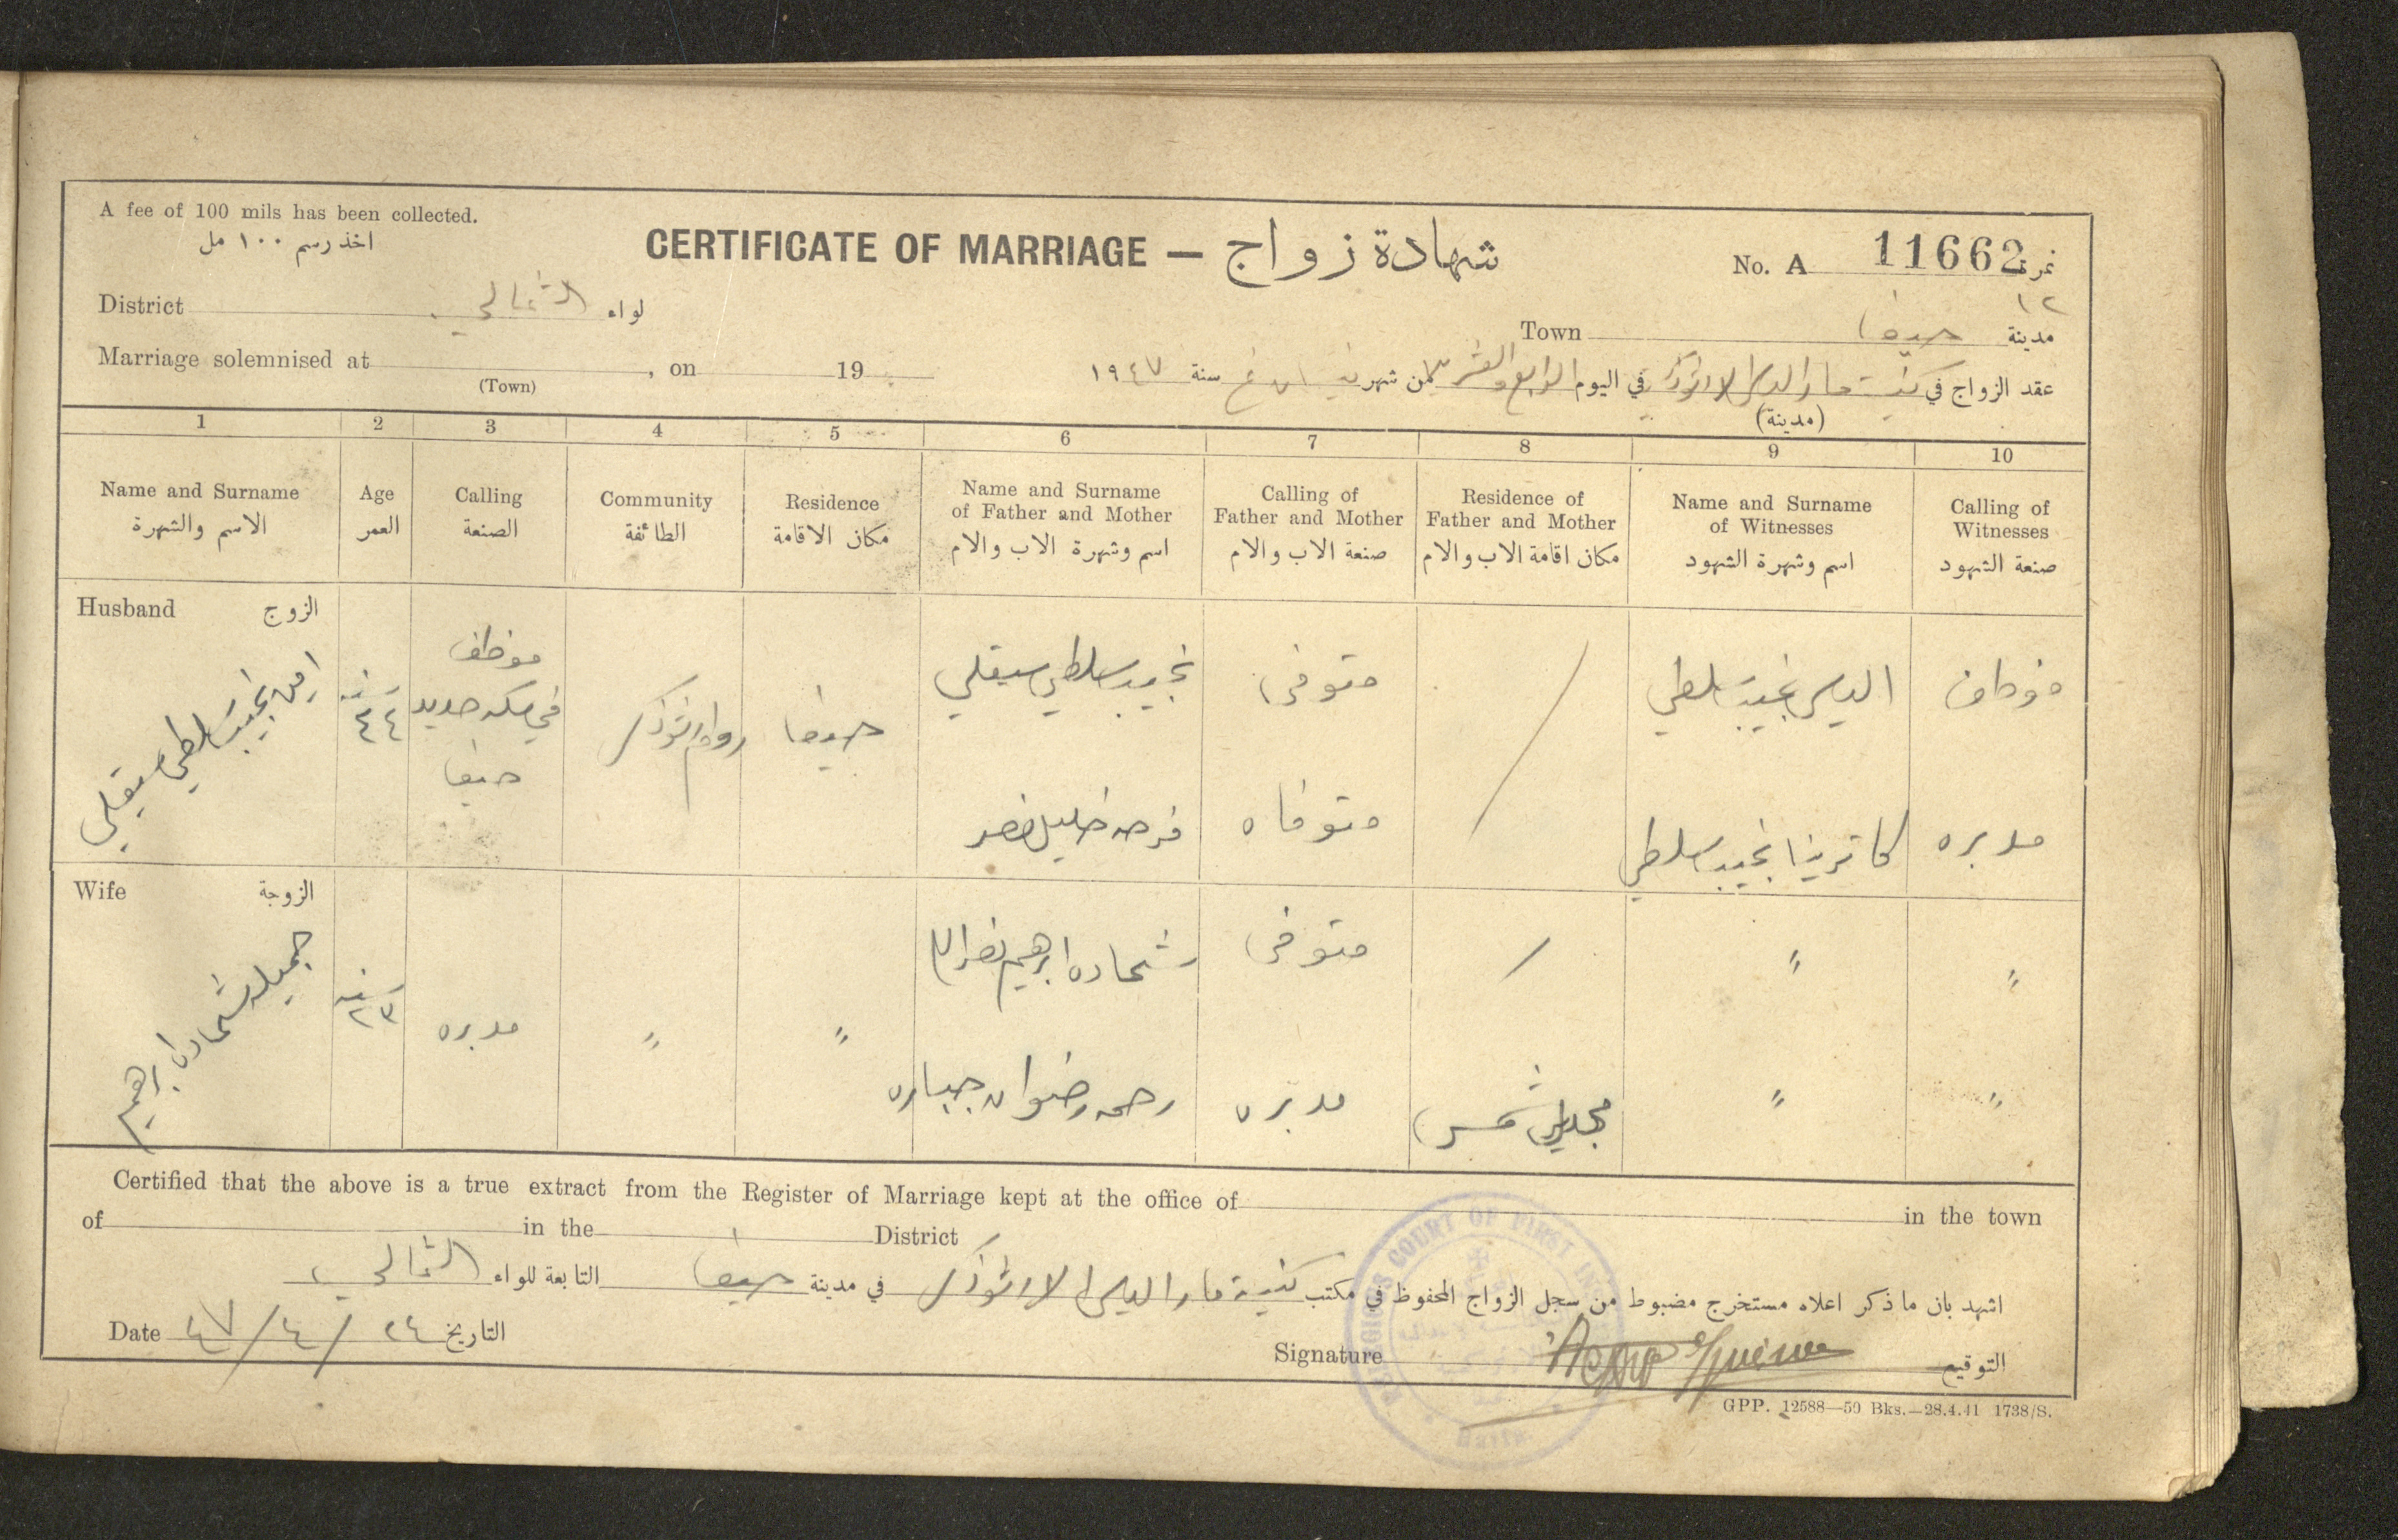 A fee of 100 mils has been collected.
اخذ رسم ١٠٠ مل
CERTIFICATE OF MARRIAGE — شهادة زواج
No. A 11662 نمرة
١٢
District الشمالي لواء
Town حيفا مدينة
Marriage solemnised at , on 19
(Town)
عقد الزواج في كنيسة مار الياس الارثوذكس في اليوم الرابع والعشرين من شهر نيسان سنة ١٩٤٧
(مدينة)
1 2 3 4 5 6 7 8 9 10
Name and Surname
الاسم والشهرة
Age
العمر
Calling
الصنعة
Community
الطائفة
Residence
مكان الاقامة
Name and Surname
of Father and Mother
اسم وشهرة الاب والام
Calling of
Father and Mother
صنعة الاب والام
Residence of
Father and Mother
مكان اقامة الاب والام
Name and Surname
of Witnesses
اسم وشهرة الشهود
Calling of
Witnesses
صنعة الشهود
Husband الزوج
امين نجيب سلطي سيقلي
سنه
٤٤
موظف
في سكه حديد
حيفا
روم ارثوذكس
حيفا
نجيب سلطي سيقلي
متوفى
/
الياس نجيب سلطي
موظف
فرحه خليل خضر
متوفاه
كاترينا نجيب سلطي
مدبره
Wife الزوجة
جميله شحاده ابرهيم
سنه
٢٣
مدبره
"
"
شحاده ابرهيم نصرالله
متوفى
/
"
"
رحمه رضوان جباره
مدبره
مجدل شمس
"
"
Certified that the above is a true extract from the Register of Marriage kept at the office of in the town
of in the District
اشهد بان ما ذكر اعلاه مستخرج مضبوط من سجل الزواج المحفوظ في مكتب كنيسة مار الياس الارثوذكس في مدينة حيفا التابعة للواء الشمالي
Date ٢٤/٤/٤٧ التاريخ
Signature التوقيع
RELIGIOUS COURT OF FIRST
Haifa
GPP. 12588—50 Bks.—28.4.41 1738/S.